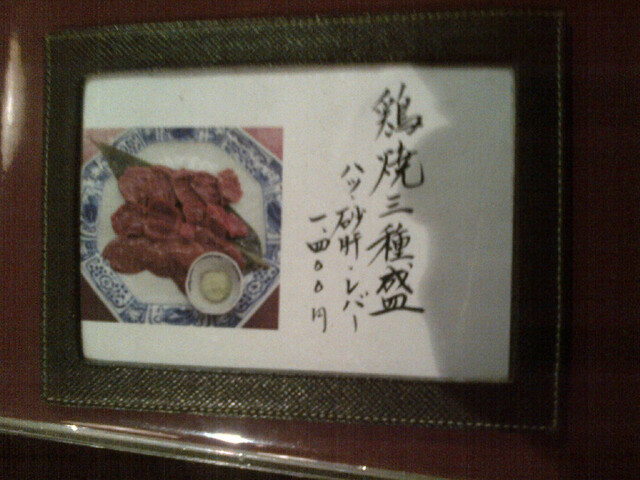 鶏焼三種盛
ハツ・砂肝・レバー
一、四〇〇円